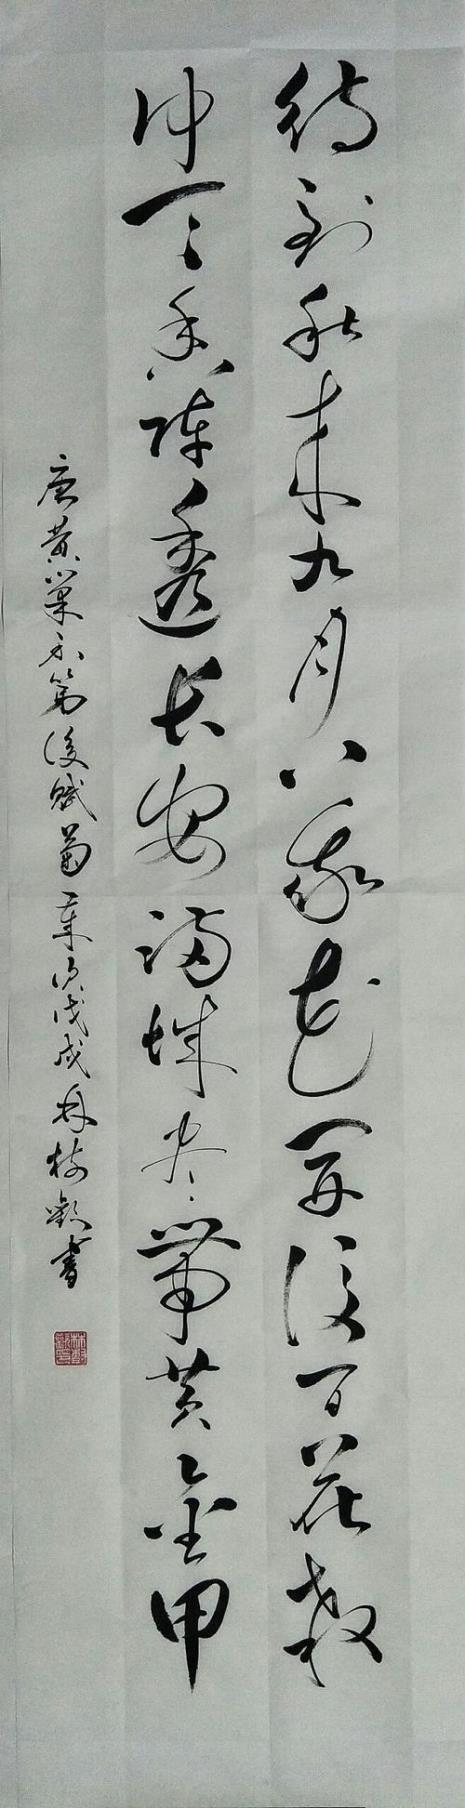 待到秋来九月八我花开後百花殺
冲天香阵透长安满城尽带黄金甲
唐黄巢不第後赋菊岁次戊戌林树书